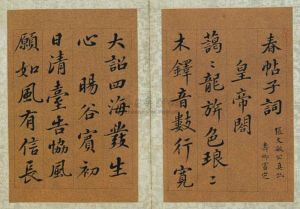 春帖子詞
皇帝閤
藹〻龍旂色琅〻
木鐸音數行寬
大詔四海發生
心暘谷賓初
日清臺告協風
願如風有信長